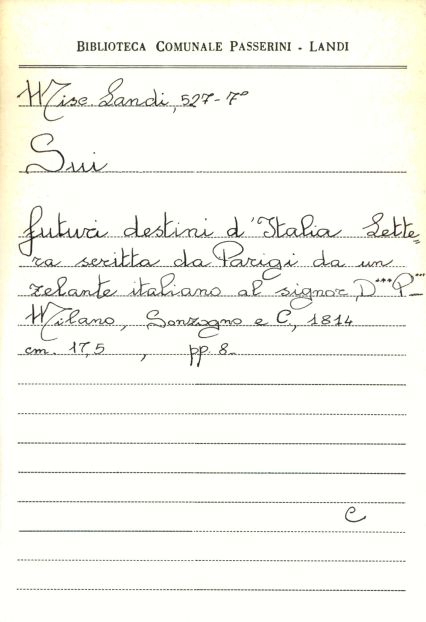 BIBLIOTECA COMUNALE PASSERINI - LANDI
Misc. Landi, 527-7º
Sui
futuri destini d'Italia Lette=
ra scritta da Parigi da un
zelante italiano al signor D*** P***
Milano, Sonzogno e C., 1814
cm. 17,5 , pp. 8-
C